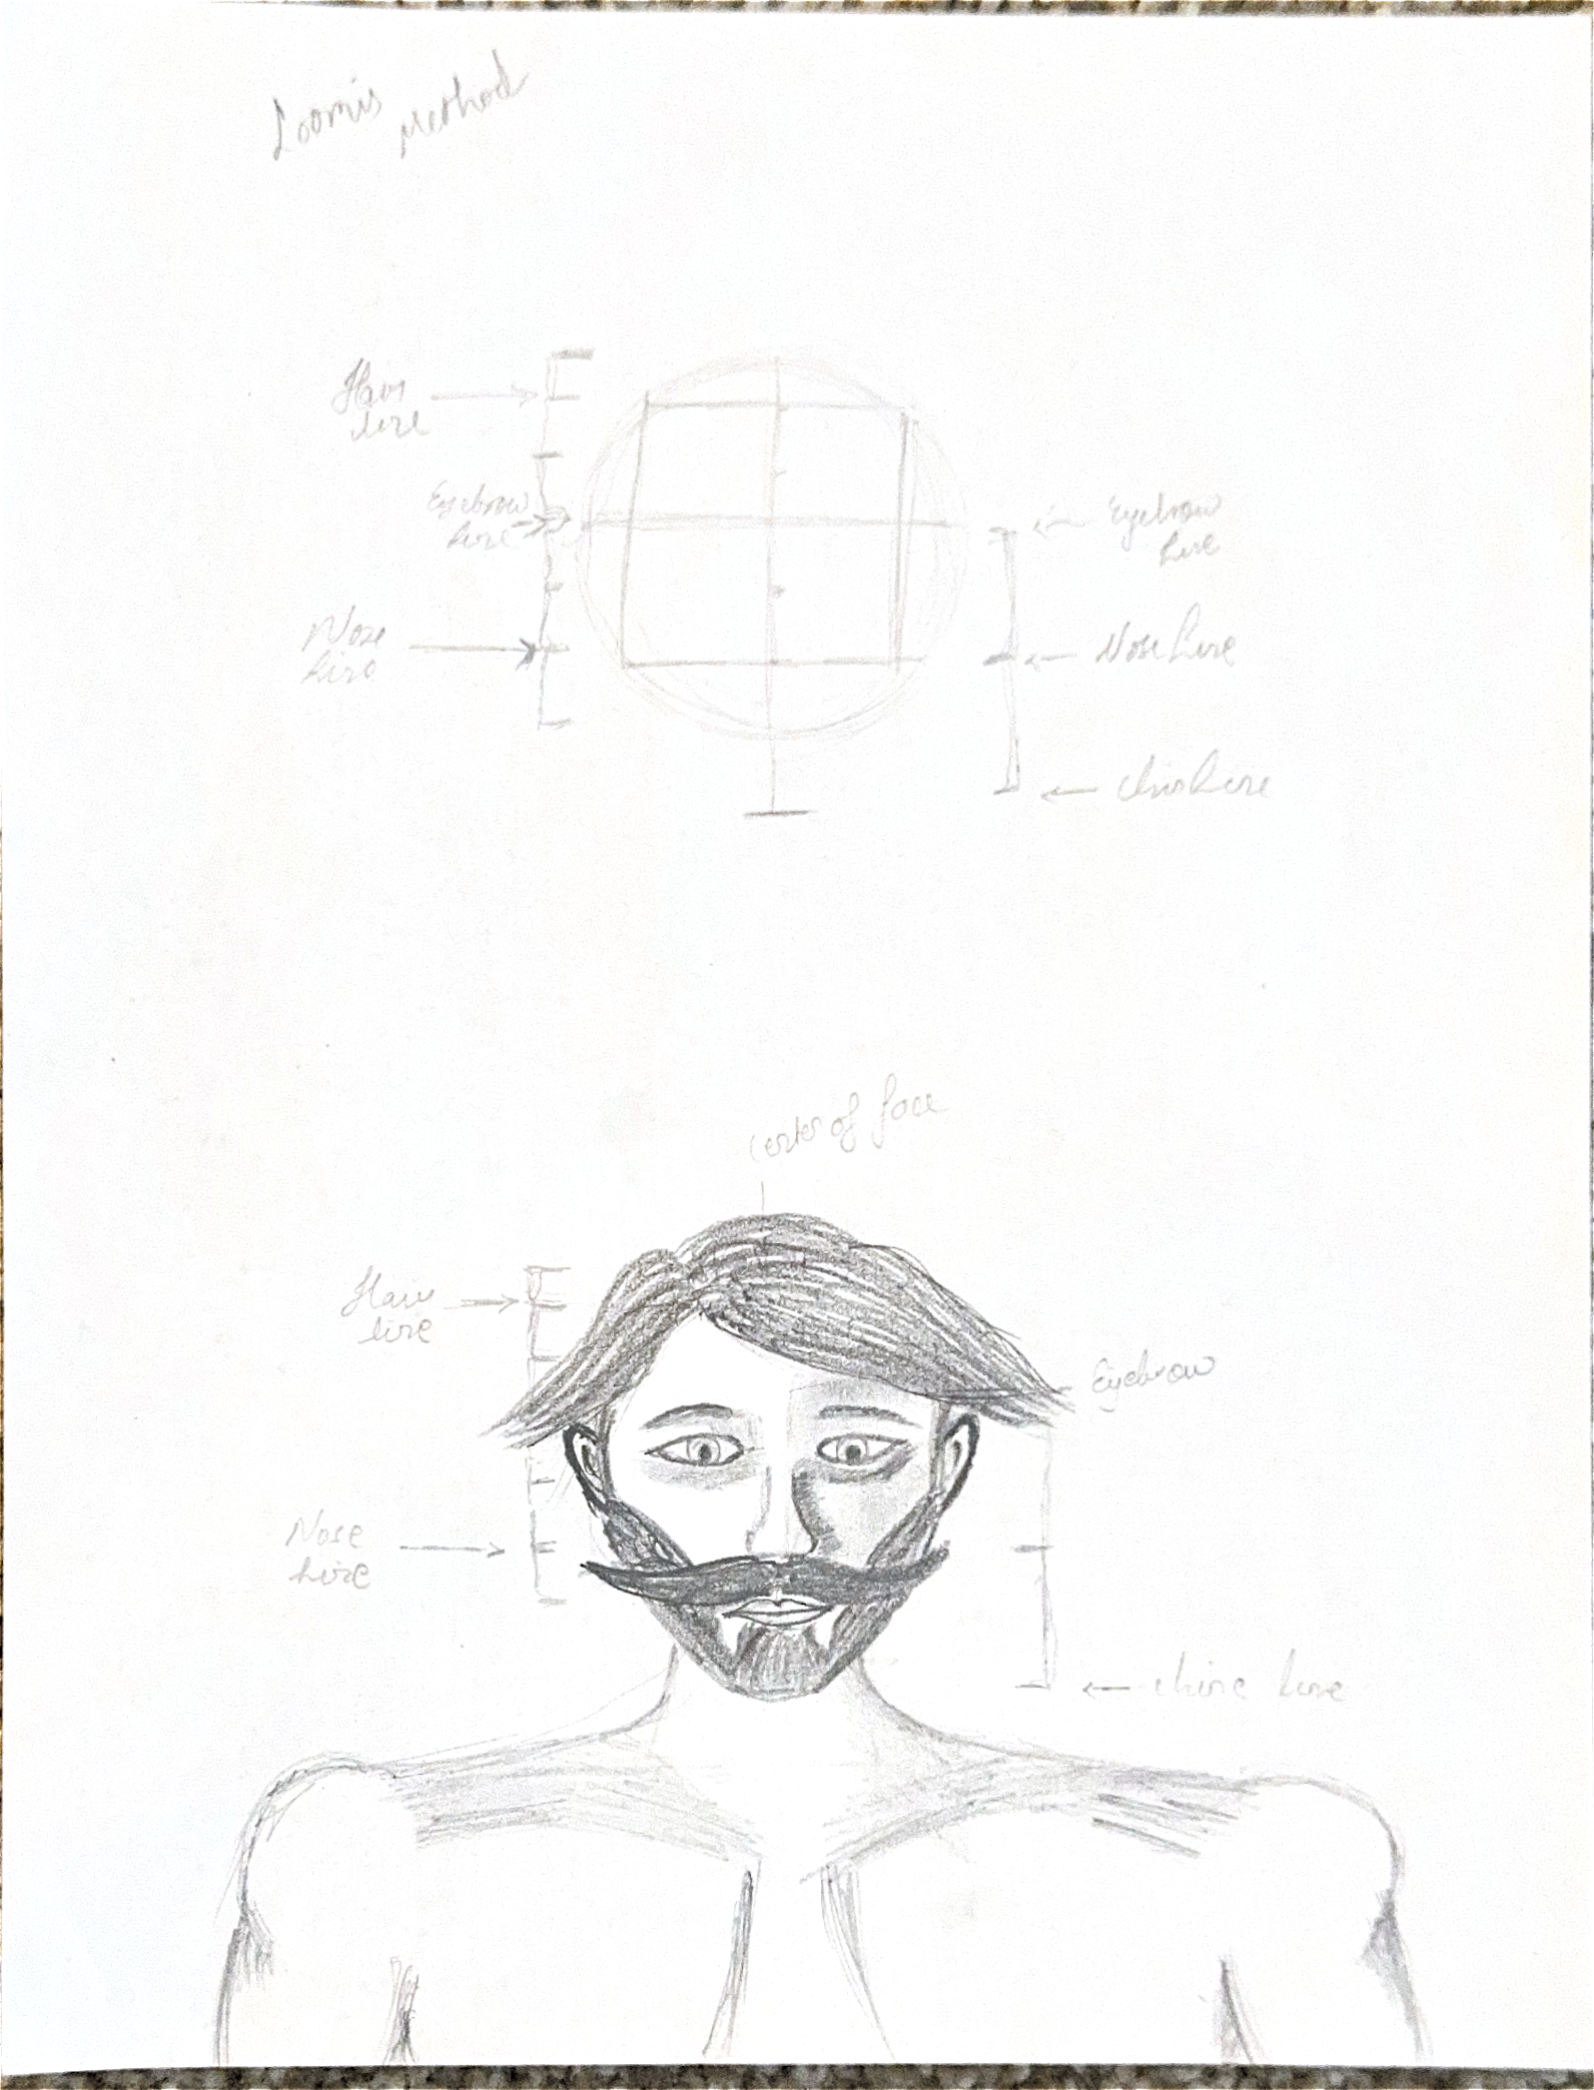 Loomis Method
Hair
line
Eyebrow
line
Eyebrow
line
Nose
line
Nose line
chin line
center of face
Hair
line
Eyebrow
Nose
line
chine line